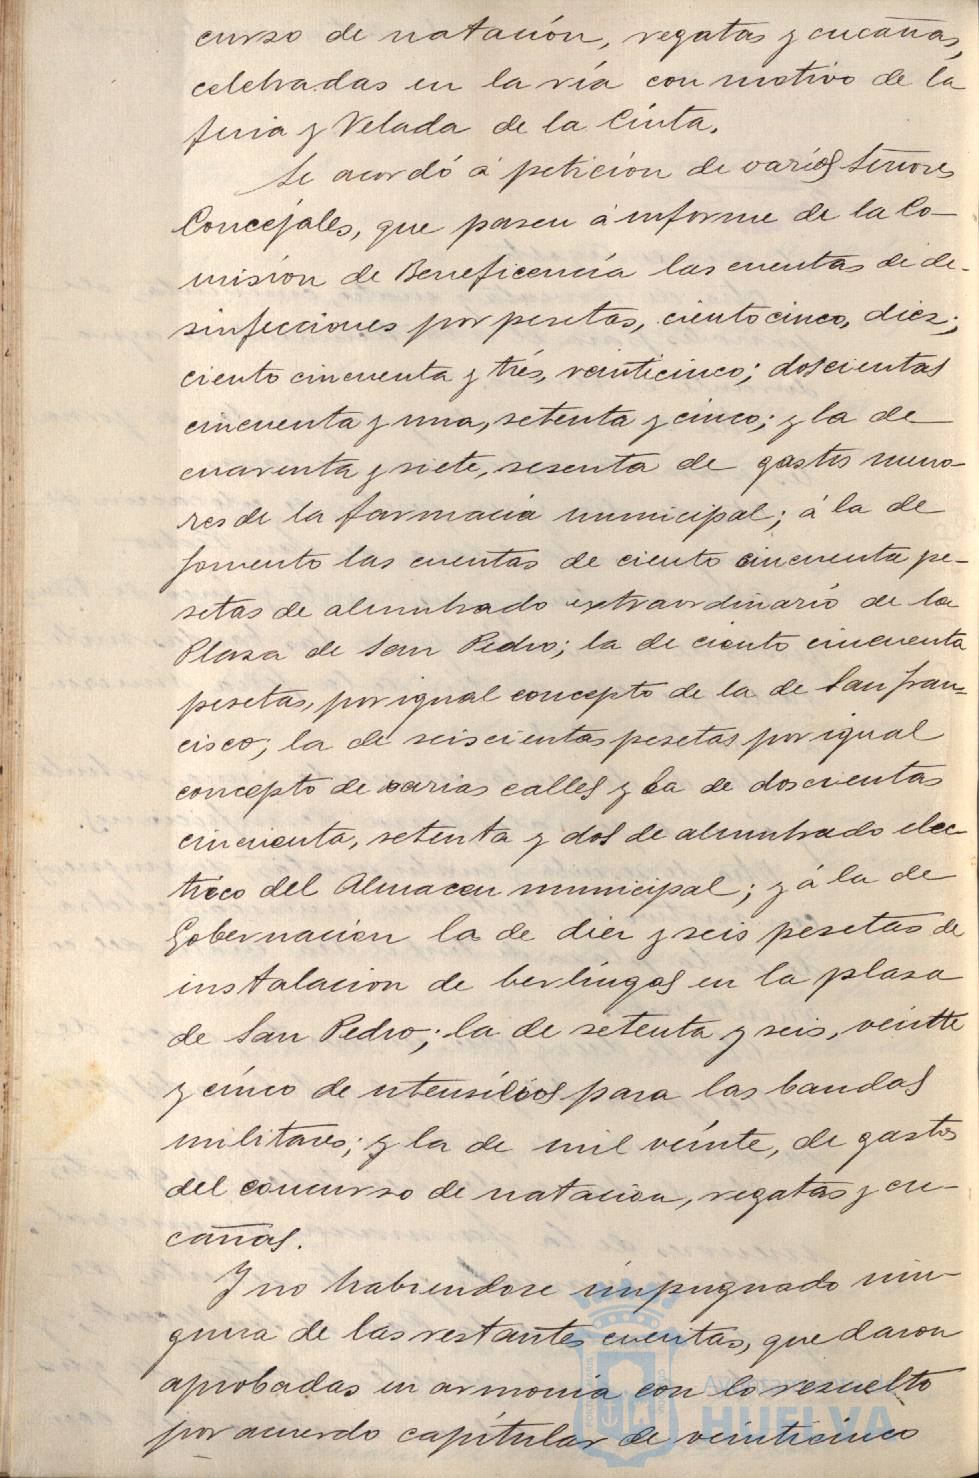 curso de natación, regatas y cucañas,
celebradas en la ría con motivo de la
feria y Velada de la Cinta.
Se acordó á petición de varios Señores
Concejales, que pasen á informe de la Co-
misión de Beneficencia las cuentas de de-
sinfecciones por pesetas, ciento cinco, diez;
ciento cincuenta y tres, veinticinco; doscientas
cincuenta y una, setenta y cinco; y la de
cuarenta y siete, sesenta de gastos meno-
res de la farmacia municipal; á la de
fomento las cuentas de ciento cincuenta pe-
setas de alumbrado extraordinario de la
Plaza de San Pedro; la de ciento cincuenta
pesetas, por igual concepto de la de San Fran-
cisco; la de seiscientas pesetas por igual
concepto de varias calles y la de doscientas
cincuenta, setenta y dos de alumbrado elec
trico del Almacen municipal; y á la de
Gobernacion la de diez y seis pesetas de
instalacion de berlingas en la plaza
de San Pedro; la de setenta y seis, veinte
y cinco de utensilios para las bandas
militares; y la de mil veinte, de gastos
del concurso de natacion, regatas y cu-
cañas.
Y no habiendose impugnado nin-
guna de las restantes cuentas, quedaron
aprobadas en armonia con lo resuelto
por acuerdo capitular de veinticinco
Ayuntamiento
HUELVA